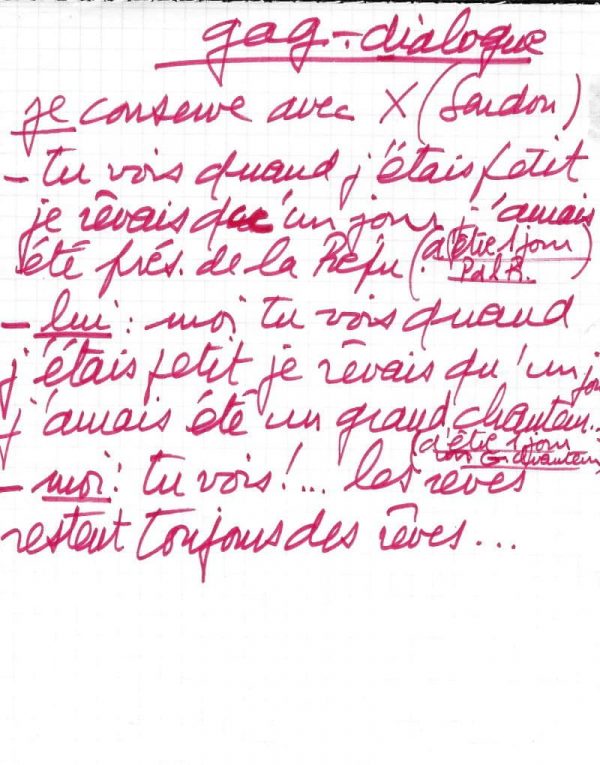 gag-dialogue
je converse avec X (Sardou)
- tu vois quand j'étais petit
je rêvais qu'un jour j'aurais
été prés. de la Répu (d'être 1 jour
P de la R.)
- lui : moi tu vois quand
j'étais petit je rêvais qu'un jou
j'aurais été un grand chanteur...
(d'être 1 jour
un G chanteur)
- moi : tu vois !... les rêves
restent toujours des rêves...